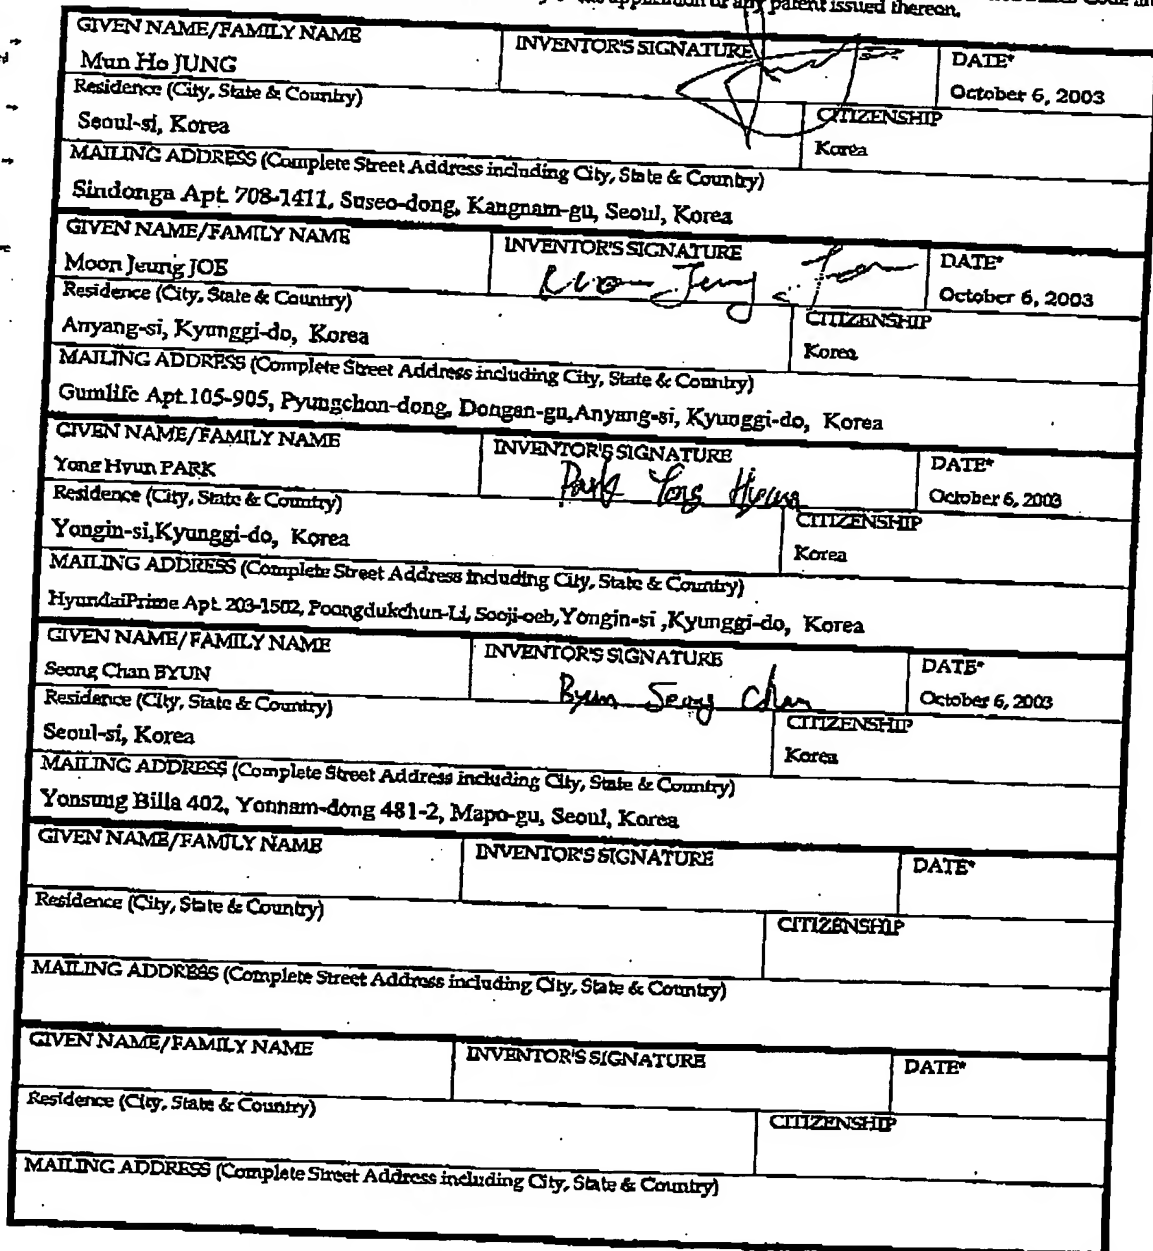 application or any patent issued thereon.
GIVEN NAME/FAMILY NAME
INVENTOR'S SIGNATURE
DATE*
Mun Ho JUNG
October 6, 2003
Residence (City, State & Country)
CITIZENSHIP
Seoul-si, Korea
Korea
MAILING ADDRESS (Complete Street Address including City, State & Country)
Sindonga Apt. 708-1411, Suseo-dong, Kangnam-gu, Seoul, Korea
GIVEN NAME/FAMILY NAME
INVENTOR'S SIGNATURE
DATE*
Moon Jeung JOE
October 6, 2003
Residence (City, State & Country)
CITIZENSHIP
Anyang-si, Kyunggi-do, Korea
Korea
MAILING ADDRESS (Complete Street Address including City, State & Country)
Gumlife Apt.105-905, Pyungchon-dong, Dongan-gu,Anyang-si, Kyunggi-do, Korea
GIVEN NAME/FAMILY NAME
INVENTOR'S SIGNATURE
DATE*
Yong Hyun PARK
Park Yong Hyun
October 6, 2003
Residence (City, State & Country)
CITIZENSHIP
Yongin-si,Kyunggi-do, Korea
Korea
MAILING ADDRESS (Complete Street Address including City, State & Country)
HyundaiPrime Apt. 203-1502, Poongdukchun-Li, Sooji-oeb,Yongin-si ,Kyunggi-do, Korea
GIVEN NAME/FAMILY NAME
INVENTOR'S SIGNATURE
DATE*
Seong Chan BYUN
Byun Seong Chan
October 6, 2003
Residence (City, State & Country)
CITIZENSHIP
Seoul-si, Korea
Korea
MAILING ADDRESS (Complete Street Address including City, State & Country)
Yonsung Billa 402, Yonnam-dong 481-2, Mapo-gu, Seoul, Korea
GIVEN NAME/FAMILY NAME
INVENTOR'S SIGNATURE
DATE*
Residence (City, State & Country)
CITIZENSHIP
MAILING ADDRESS (Complete Street Address including City, State & Country)
GIVEN NAME/FAMILY NAME
INVENTOR'S SIGNATURE
DATE*
Residence (City, State & Country)
CITIZENSHIP
MAILING ADDRESS (Complete Street Address including City, State & Country)